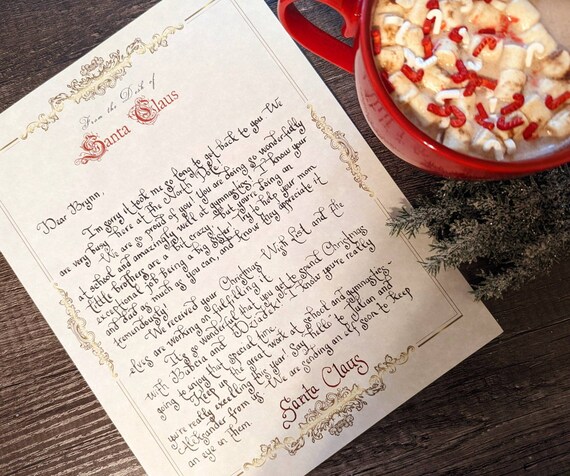 From the Desk of
Santa Claus
Dear Brynn,
I'm sorry it took me so long to get back to you-We
are very busy here at the North Pole!
We are so proud of you! You are doing so wonderfully
at school and amazingly well at gymnastics. I know your
little brothers are a bit crazy, but you're doing an
exceptional job being a big sister. Try to help your mom
and dad as much as you can, and I know they appreciate it
tremendously!
We received your Christmas Wish List and the
elves are working on fulfilling it
It's so wonderful that you get to spend Christmas
with Babcia and I know you're really
going to enjoy that special time.
Keep up the great work at school and gymnastics-
you're really excelling this year. Say hello to Julian and
Alexander from us. We are sending an elf soon to keep
an eye on them.
Santa Claus